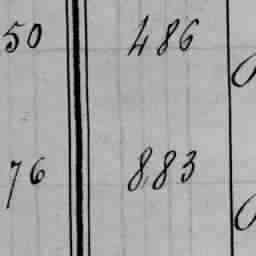 50 486
76 883